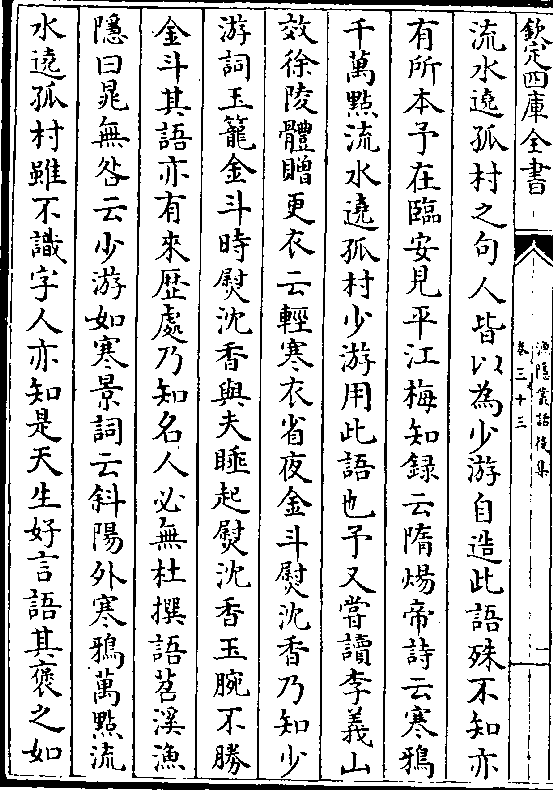 欽定四庫全書
漁隱叢話後集
卷三十三
流水遶孤村之句人皆以為少游自造此語殊不知亦
有所本予在臨安見平江梅知録云隋煬帝詩云寒鴉
千萬點流水遶孤村少游用此語也予又嘗讀李義山
效徐陵體贈更衣云輕寒衣省夜金斗熨沈香乃知少
游詞玉籠金斗時熨沈香與夫睡起熨沈香玉腕不勝
金斗其語亦有來歴處乃知名人必無杜撰語苕溪漁
隱曰晁無咎云少游如寒景詞云斜陽外寒鴉萬點流
水遶孤村雖不識字人亦知是天生好言語其褒之如